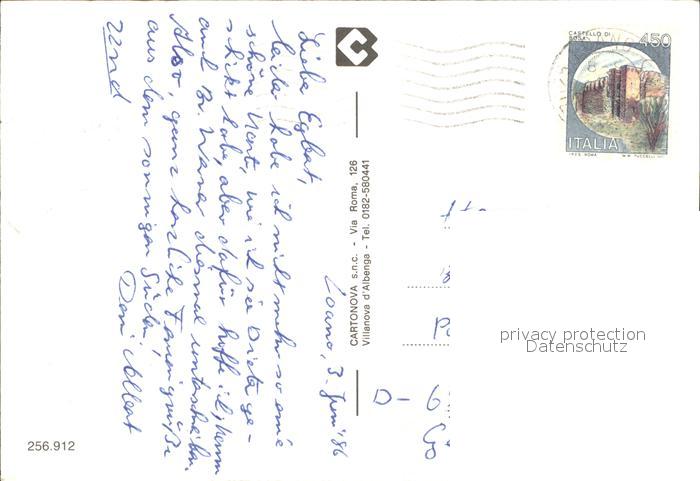 Loano, 3. Juni '86
Liebe Egbert,
leider habe ich nicht mehr so eine
schöne Karte, wie ich sie Dieta ge-
schickt habe, aber dafür hoffe ich, kann
und Br. diesmal unterschreiben.
Also ganz herzliche Feriengrüße
aus dem sonnigen Süden,
Dein Albert
CARTONOVA s.n.c. - Via Roma, 126
Villanova d'Albenga - Tel. 0182-580441
256.912
CASTELLO DI
BOSA
450
ITALIA
I.P.Z.S. ROMA
D- 6
privacy protection
Datenschutz